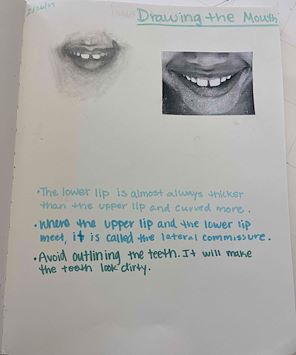 Drawing the Mouth
•The lower lip is almost always thicker
than the upper lip and curved more.
•Where the upper lip and the lower lip
meet, it is called the lateral commissure.
•Avoid outlining the teeth. It will make
the teeth look dirty.